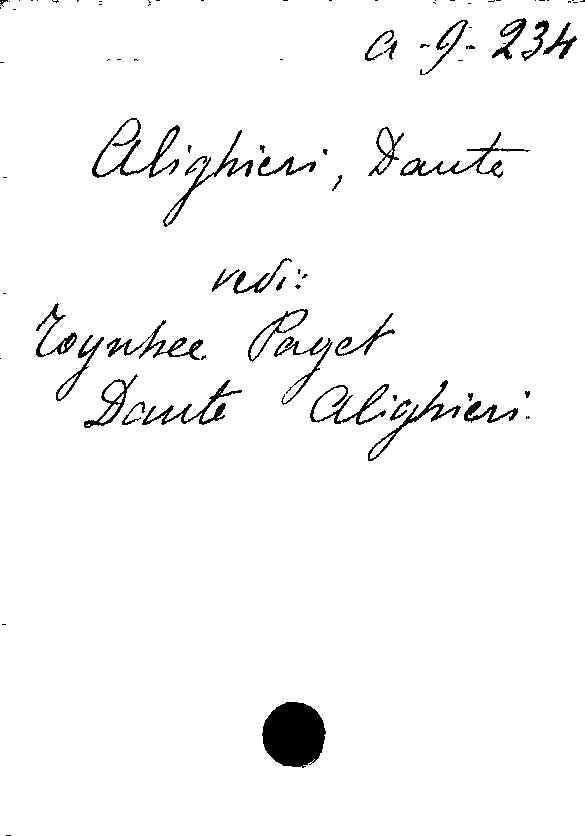 a-9-234
Alighieri, Dante
vedi:
Toynbee Paget
Dante Alighieri.